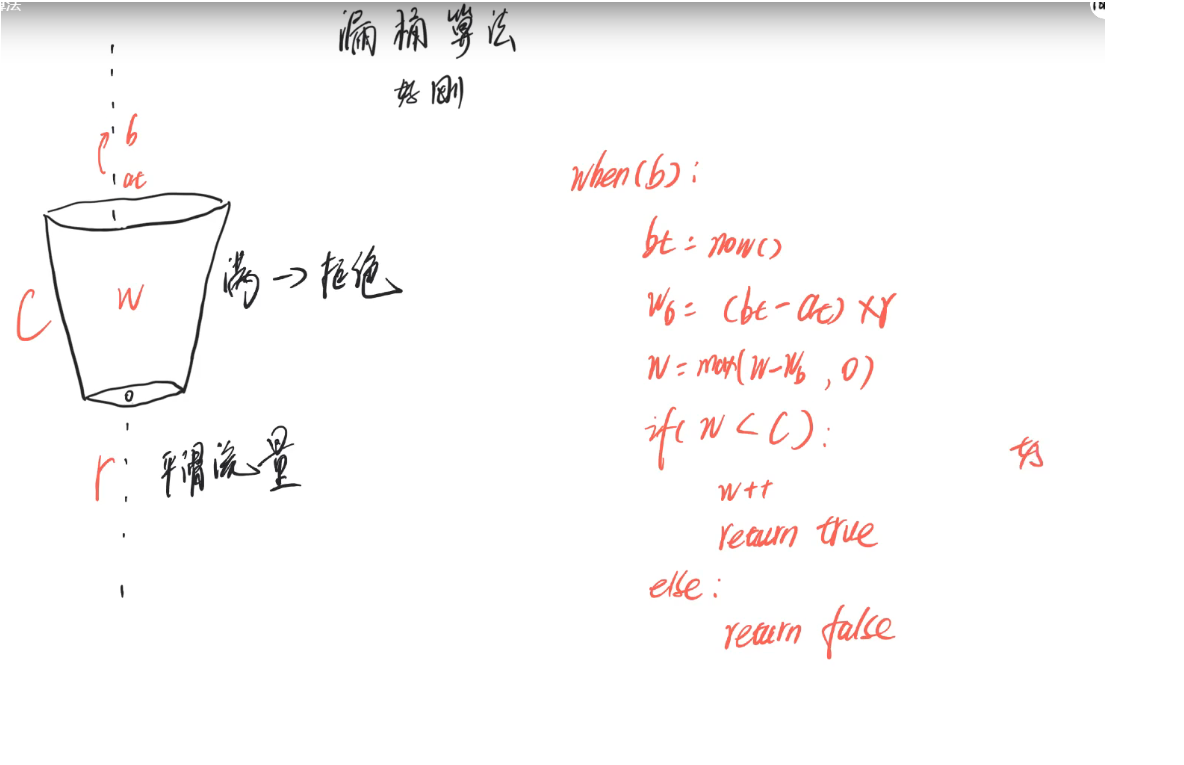 算法
漏桶算法
好刚
b
at
C
W
满 → 拒绝
r
平滑流量
when(b):
bt = now()
Wb = (bt - at) × r
W = max(W-Wb, 0)
if( W < C ):
W++
return true
else:
return false